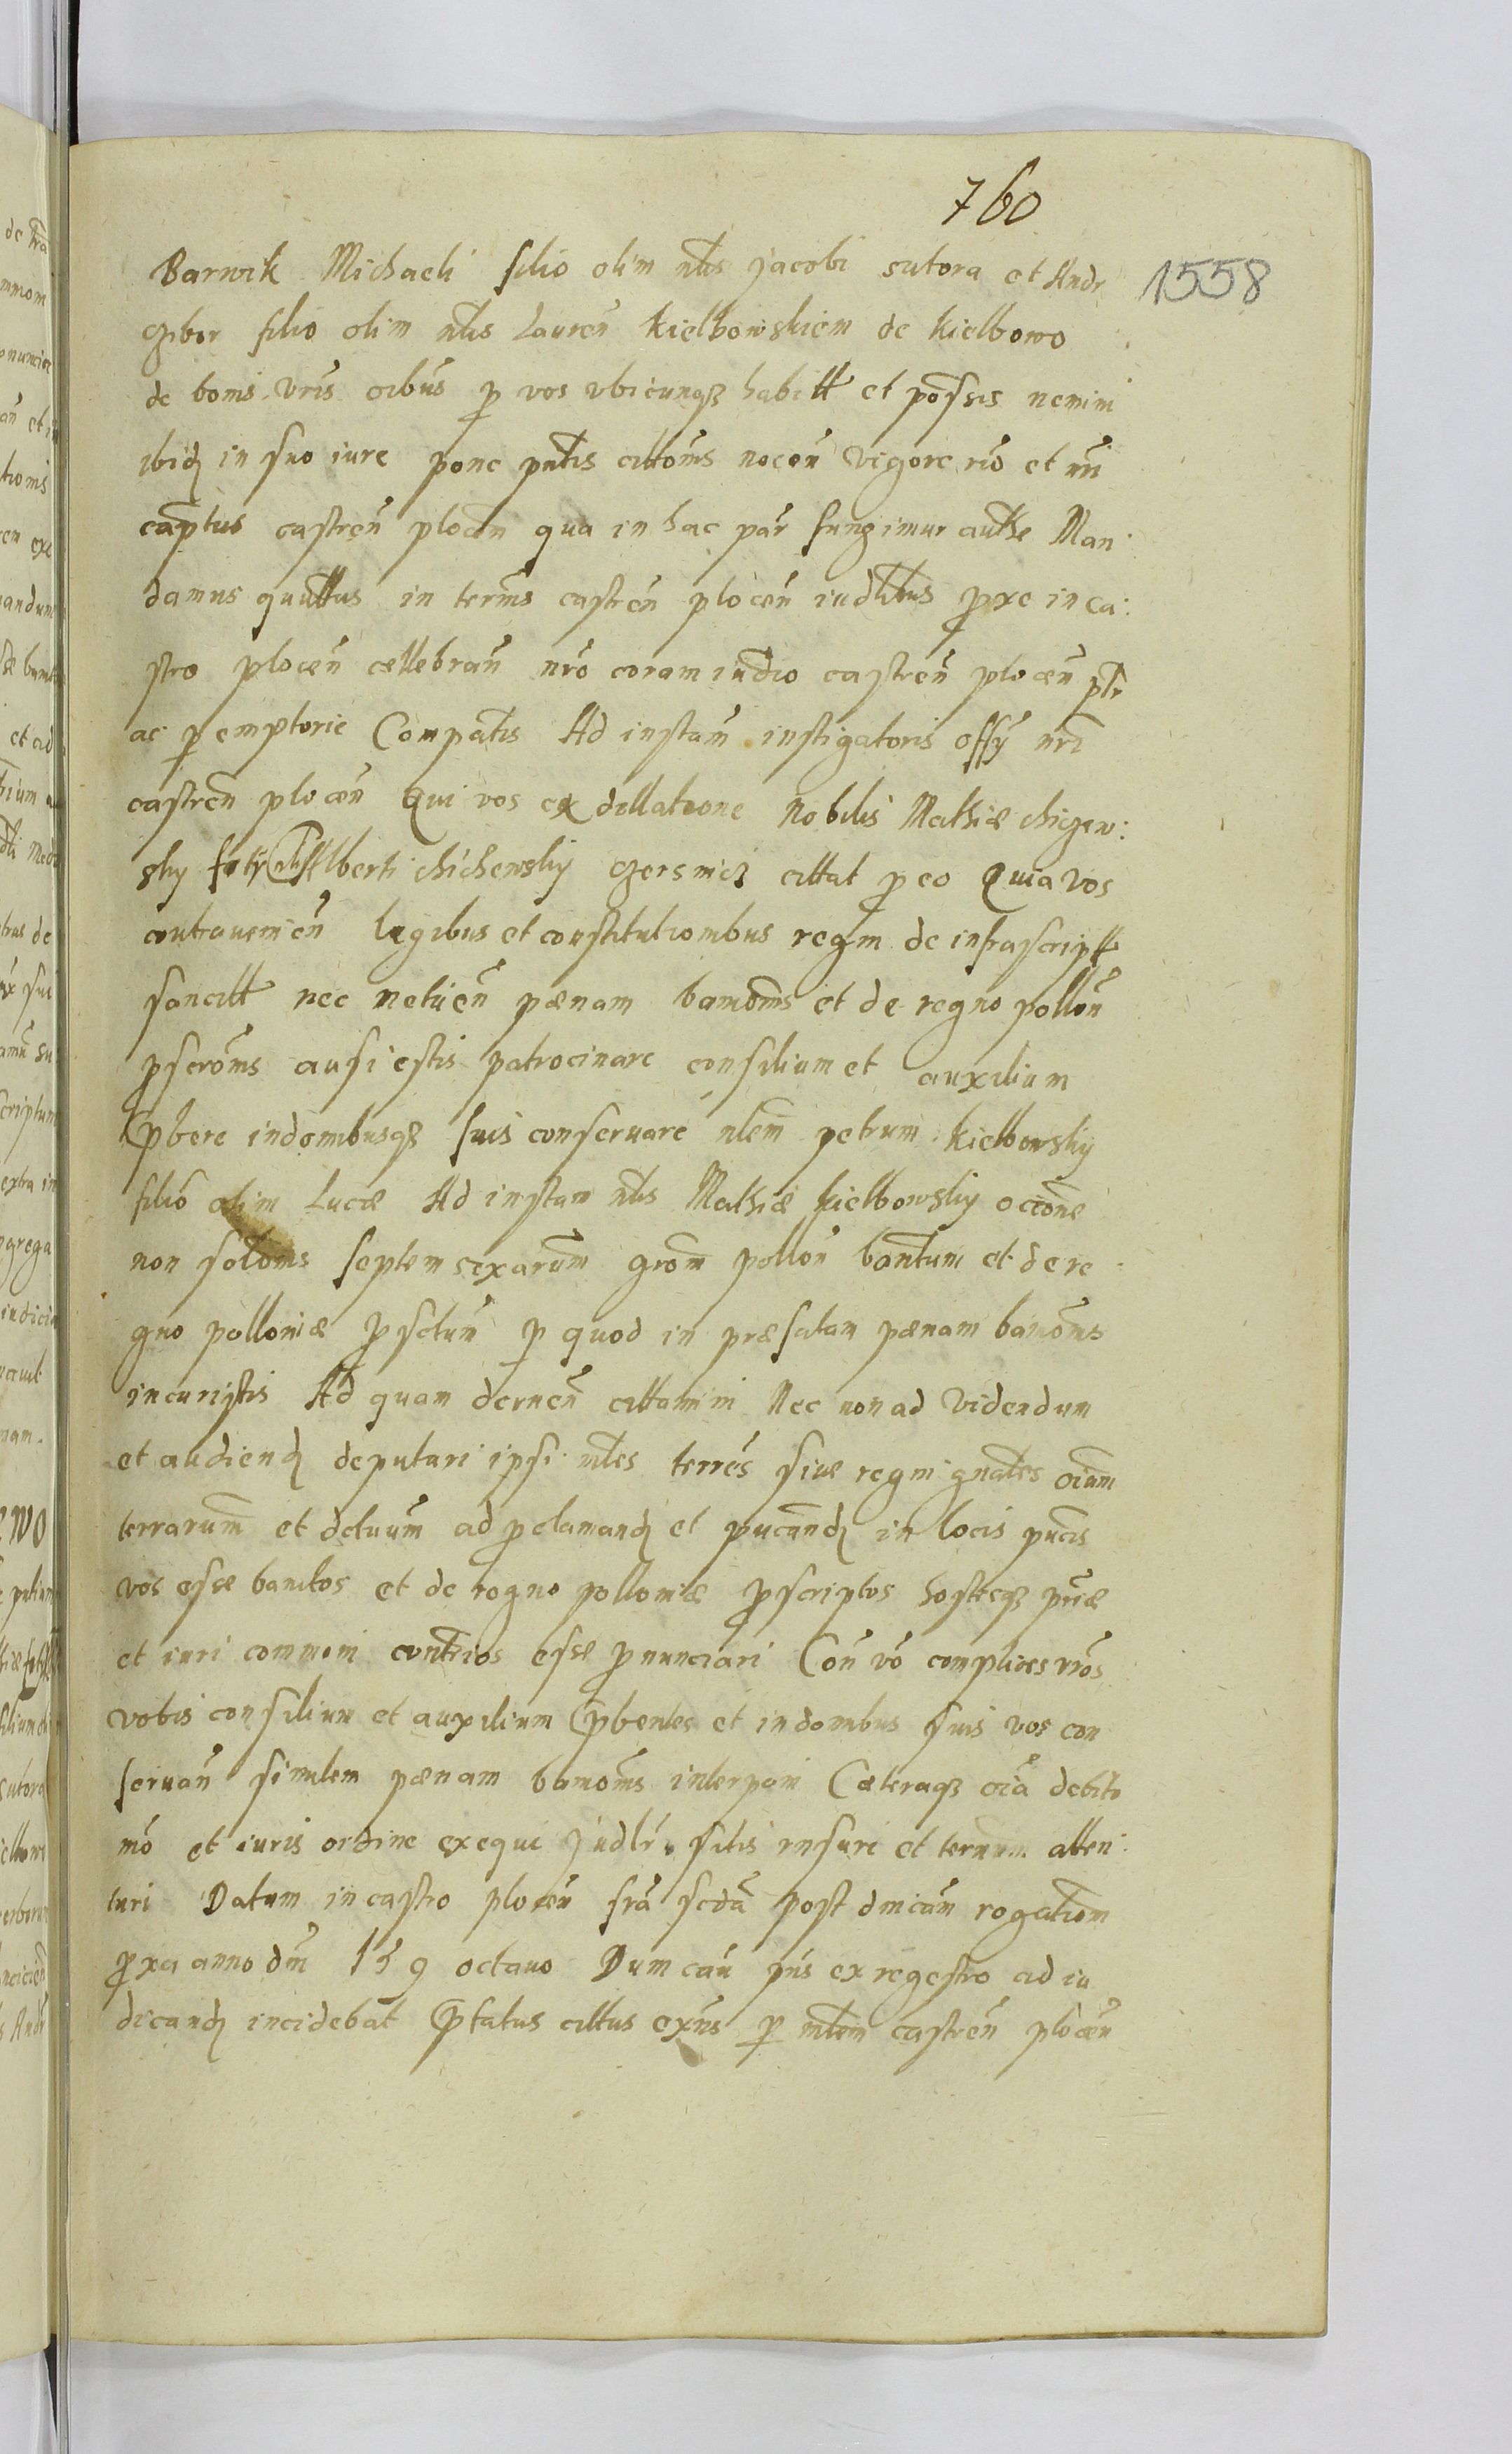 760
1558
Barwik Michaeli filio olim nlis Jacobi sutora et Andr
czber filio olim nlis Lauren kielbowskiem de kielbowo
de bonis vris oibus p vos vbicunqz habitt et possis nemini
ibid in suo iure pone pntis cittonis nocen vigore rio et
captus castren plocen qua in hac par fungimur autte Man
damus quattus in termis castren plocen iudltibus pxe in ca:
stro plocen cellebran nro coram iudio castren plocen ptr
ac p emptorie Compatis Ad instam instigatoris offy nri
castren plocen Qui vos ex dellatione Nobilis Mathiæ chiczew:
sky Alberti chichewsky czersnicz cittat p eo Quia vos
contravenien legibus et constitutionibus regni de infrascript
sancitt nec metuen pænam banonis et de regno pollon
pscronis ausi estis patrocinare consilium et auxilium
pbere indomibusqz suis conservare nlem petrum kielbowsky
filio olim Lucæ Ad instam nlis Mathiæ kielbowsky occone
non solonis septem sexarum grom pollon banitum et de re
gno polloniæ psctum p quod in præfatam pænam banonis
incuristis Ad quam decernen cittamini Nec non ad videndum
et audiend deputari ipsi mles terres sive regni gnales oium
terrarum et dctuum ad pclamand et pucand in locis pucis
vos esse banitos et de regno polloniæ pscriptos hostesqz priæ
et iuri communi contrios esse pnunciari Con vo complices vros
vobis consilium et auxilium pbentes et indomibus suis vos con
servan similem pænam banonis interponi Cæteraqz oia debito
mo et iuris ordine exequi Judlr. sitis insuri et termum atten:
turi Datum in castro plocen fra scda post dnicam rogationm
pxa anno dni 159 octavo Dum cau pns ex regestro ad iu
dicand incidebat Pfatus cittus exns p mlem castren plocen